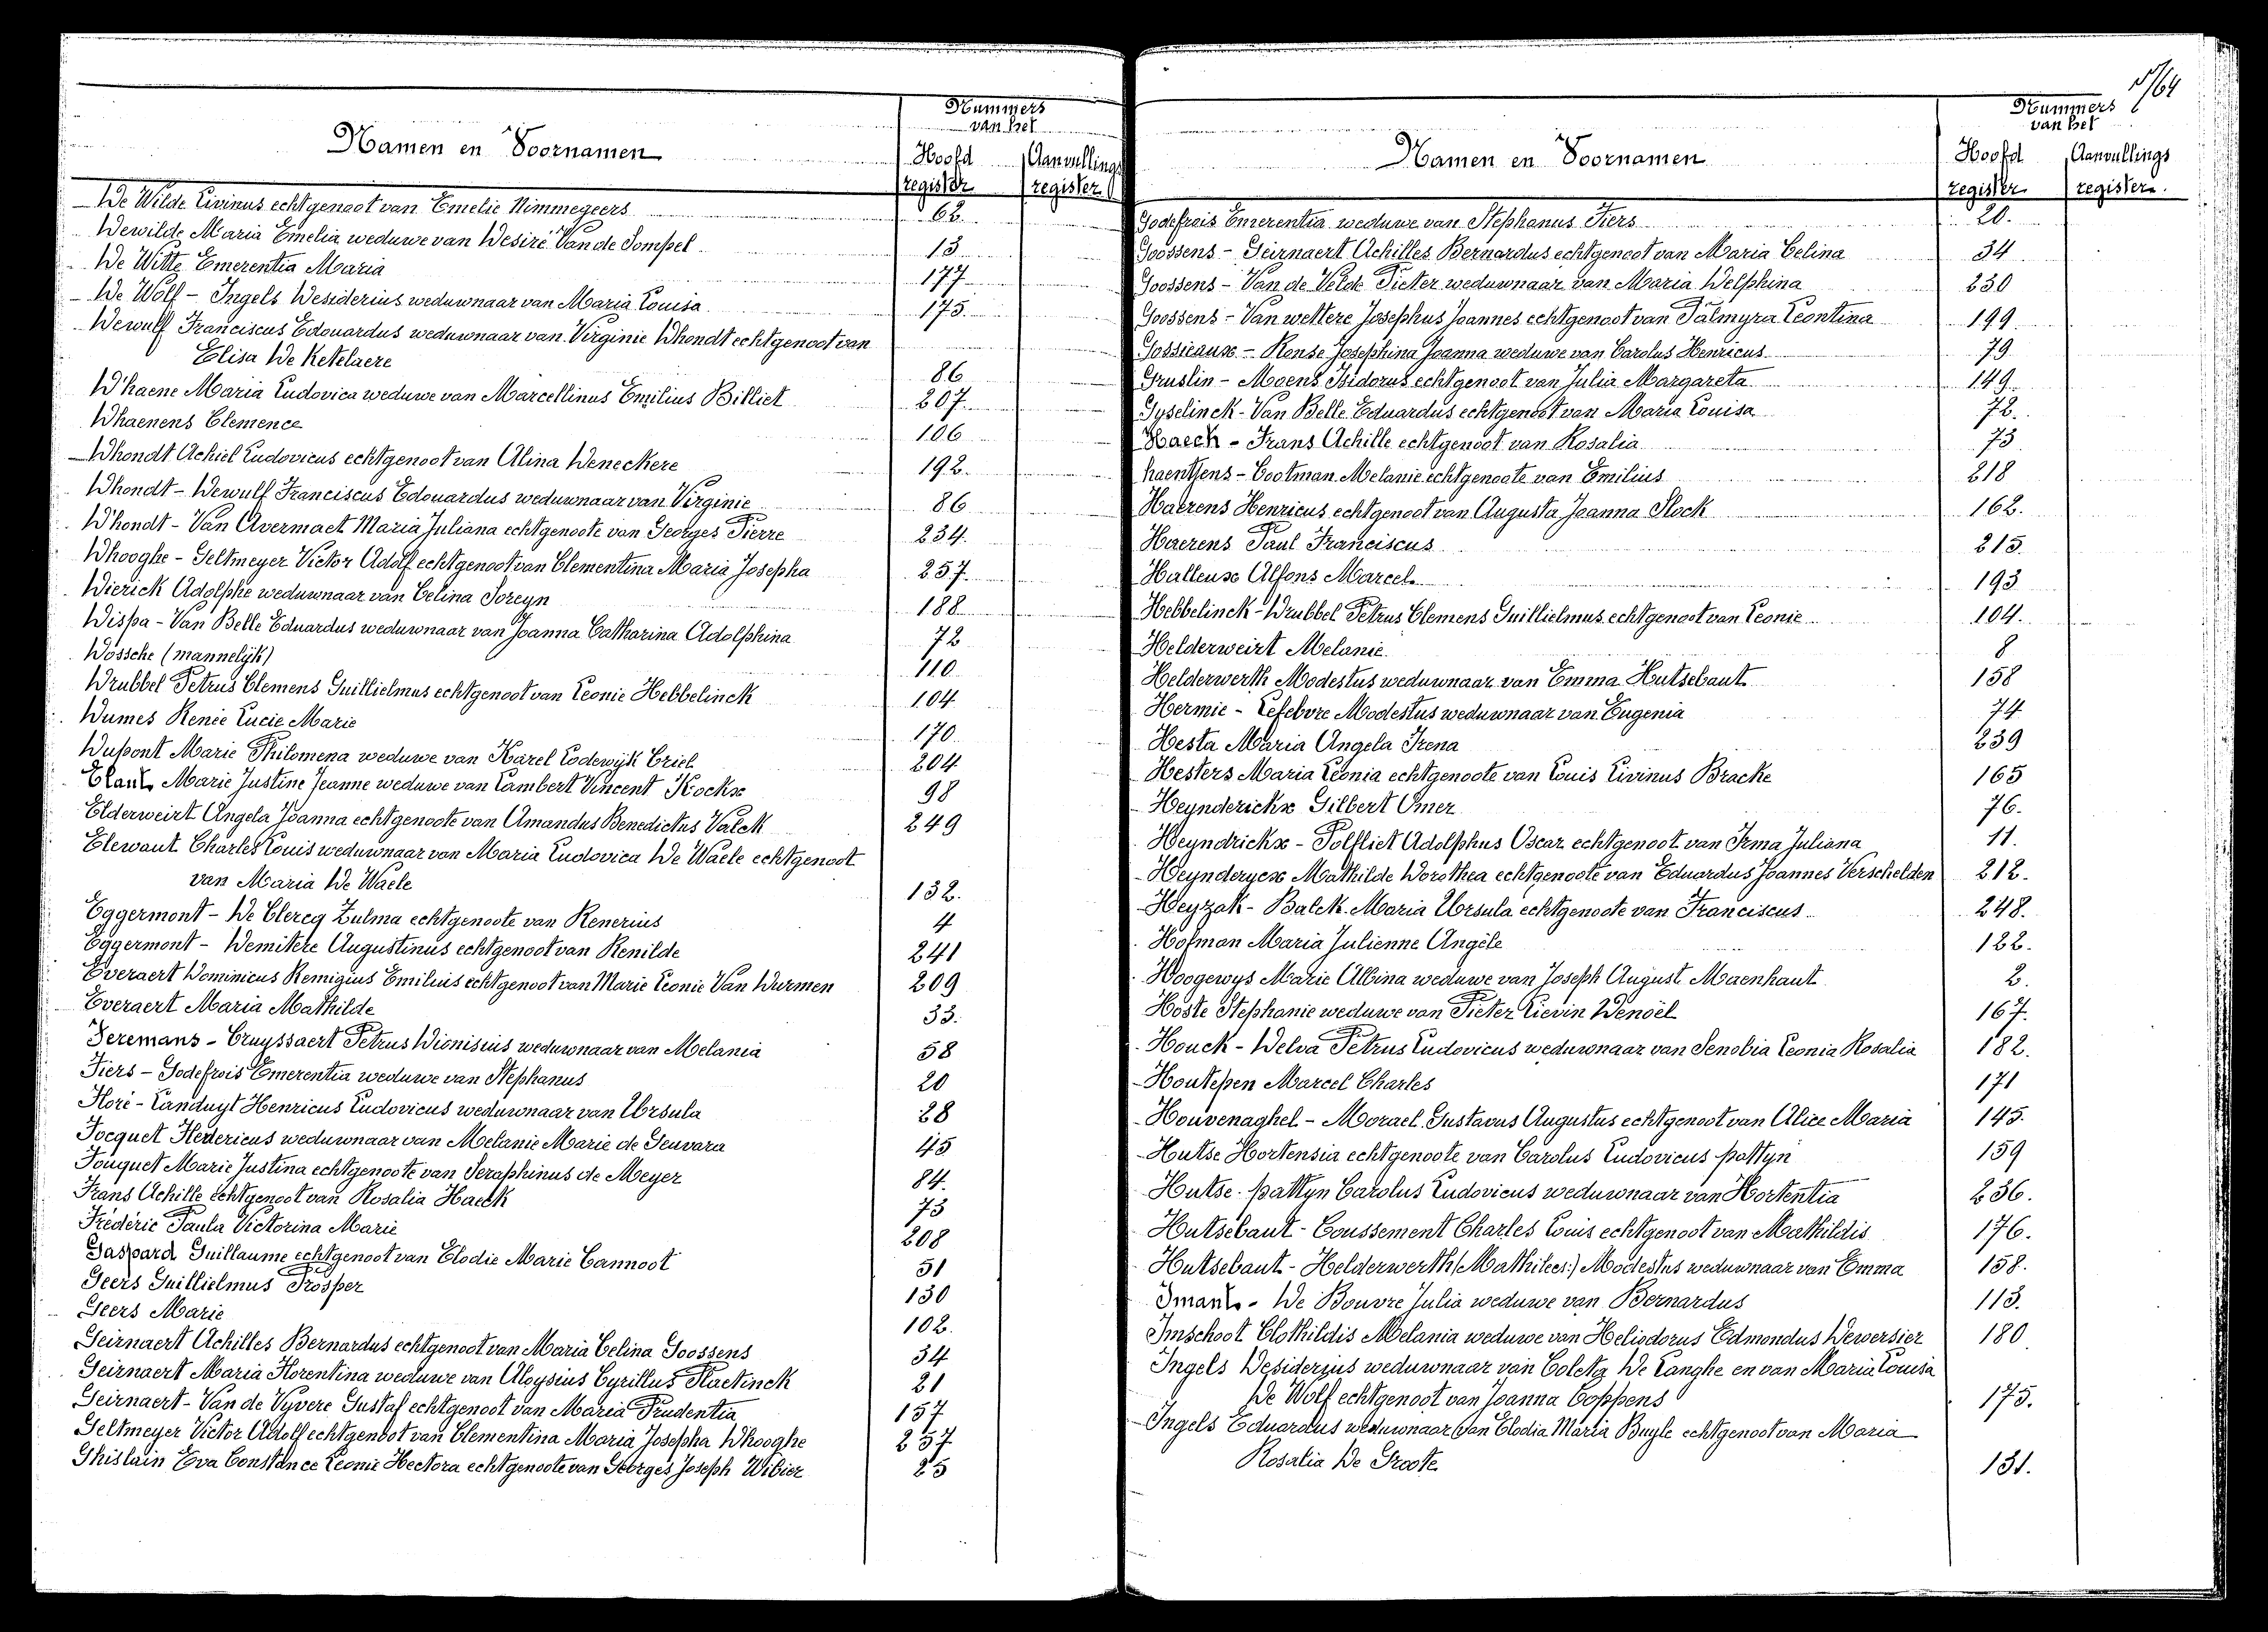 5/64
Nummers
van het
Namen en Voornamen
Hoofd register
Aanvullings register
De Wilde Livinus echtgenoot van Emelie Nimmegeers 62.
Dewilde Maria Emelia weduwe van Desiré Van de Sompel 13
De Witte Emerentia Maria 177
De Wolf - Ingels Desiderius weduwnaar van Maria Louisa 175.
Dewulf Franciscus Edouardus weduwnaar van Virginie Dhondt echtgenoot van
Elisa De Ketelaere 86
D'haene Maria Ludovica weduwe van Marcellinus Emilius Billiet 207
Dhaenens Clemence 106
Dhondt Achiel Ludovicus echtgenoot van Alina Deneckere 192.
Dhondt - Dewulf Franciscus Edouardus weduwnaar van Virginie 86
D'hondt - Van Avermaet Maria Juliana echtgenoote van Georges Pierre 234.
Dhooghe - Geltmeyer Victor Adolf echtgenoot van Clementina Maria Josepha 257.
Dierick Adolphe weduwnaar van Celina Soreyn 188
Dispa - Van Belle Eduardus weduwnaar van Joanna Catharina Adolphina 72
Dossche (mannelijk) 110
Drubbel Petrus Clemens Guillielmus echtgenoot van Leonie Hebbelinck 104
Dumes Renée Lucie Marie 170
Dupont Marie Philomena weduwe van Karel Lodewijk Criel 204
Elaut Marie Justine Jeanne weduwe van Lambert Vincent Kockx 98
Elderweirt Angela Joanna echtgenoote van Amandus Benedictus Valck 249
Elewaut Charles Louis weduwnaar van Maria Ludovica De Waele echtgenoot
van Maria De Waele 132.
Eggermont - De Clercq Zulma echtgenoote van Renerius 4
Eggermont - Demitere Augustinus echtgenoot van Renilde 241
Everaert Dominicus Remigius Emilius echtgenoot van Marie Leonie Van Durmen 209
Everaert Maria Mathilde 33.
Feremans - Cruyssaert Petrus Dionisius weduwnaar van Melania 58
Fiers - Godefrois Emerentia weduwe van Stephanus 20
Floré - Landuyt Henricus Ludovicus weduwnaar van Ursula 28
Focquet Federicus weduwnaar van Melanie Marie de Geuvara 45
Fouquet Marie Justina echtgenoote van Seraphinus de Meyer 84.
Frans Achille echtgenoot van Rosalia Haeck 73
Fréderic Paula Victorina Marie 208
Gaspard Guillaume echtgenoot van Elodie Marie Cannoot 51
Geers Guillielmus Prosper 130
Geers Marie 102.
Geirnaert Achilles Bernardus echtgenoot van Maria Celina Goossens 34
Geirnaert Maria Florentina weduwe van Aloysius Cyrillus Slactinck 21
Geirnaert - Van de Vyvere Gustaf echtgenoot van Maria Prudentia 157
Geltmeyer Victor Adolf echtgenoot van Clementina Maria Josepha Dhooghe 257
Ghislain Eva Constance Leonie Hectora echtgenoote van Georges Joseph Dibier 25
Nummers
van het
Namen en Voornamen
Hoofd register
Aanvullings register.
Godefrois Emerentia weduwe van Stephanus Fiers 20.
Goossens - Geirnaert Achilles Bernardus echtgenoot van Maria Celina 34
Goossens - Van de Velde Pieter weduwnaar van Maria Delphina 230
Goossens - Van wettere Josephus Joannes echtgenoot van Palmyra Leontina 199
Gossieaux - Rense Josephina Joanna weduwe van Carolus Henricus 79
Gruslin - Moens Isidorus echtgenoot van Julia Margareta 149.
Gyselinck - Van Belle Eduardus echtgenoot van Maria Louisa 72.
Haeck - Frans Achille echtgenoot van Rosalia 73
haentjens - Cootman Melanie echtgenoote van Emilius 218
Haerens Henricus echtgenoot van Augusta Joanna Slock 162.
Haerens Paul Franciscus 215.
Halleux Alfons Marcel 193
Hebbelinck - Drubbel Petrus Clemens Guillielmus echtgenoot van Leonie 104.
Helderweirt Melanie 8
Helderwerth Modestus weduwnaar van Emma Hutsebaut 158
Hermie - Lefebvre Modestus weduwnaar van Eugenia 74
Hesta Maria Angela Irena 239
Hesters Maria Leonia echtgenoote van Louis Livinus Bracke 165
Heynderickx Gilbert Omer 76.
Heyndrickx - Polfliet Adolphus Oscar echtgenoot van Irma Juliana 11.
Heynderycx Mathilde Dorothea echtgenoote van Eduardus Joannes Verschelden 212.
Heyzak - Balck Maria Ursula echtgenoote van Franciscus 248.
Hofman Maria Julienne Angèle 122.
Hoogewys Marie Albina weduwe van Joseph August Maenhaut 2.
Hoste Stephanie weduwe van Pieter Lievin Denoël 167.
Houck - Delva Petrus Ludovicus weduwnaar van Senobia Leonia Rosalia 182.
Houtepen Marcel Charles 171
Houvenaghel - Morael Gustavus Augustus echtgenoot van Alice Maria 145.
Hutse Hortensia echtgenoote van Carolus Ludovicus pattyn 159
Hutse - pattyn Carolus Ludovicus weduwnaar van Hortentia 236.
Hutsebaut - Coussement Charles Louis echtgenoot van Mathildis 176.
Hutsebaut - Helderwerth (Mathilees:) Modestus weduwnaar van Emma 158.
Imants - De Bouvre Julia weduwe van Bernardus 113.
Imschoot Clothildis Melania weduwe van Heliodorus Edmondus Dewersier 180
Ingels Desiderius weduwnaar van Coleta De Langhe en van Maria Louisa
De Wolf echtgenoot van Joanna Coppens 175.
Ingels Eduardus weduwnaar van Elodia Maria Buyle echtgenoot van Maria
Rosalia De Groote 131.